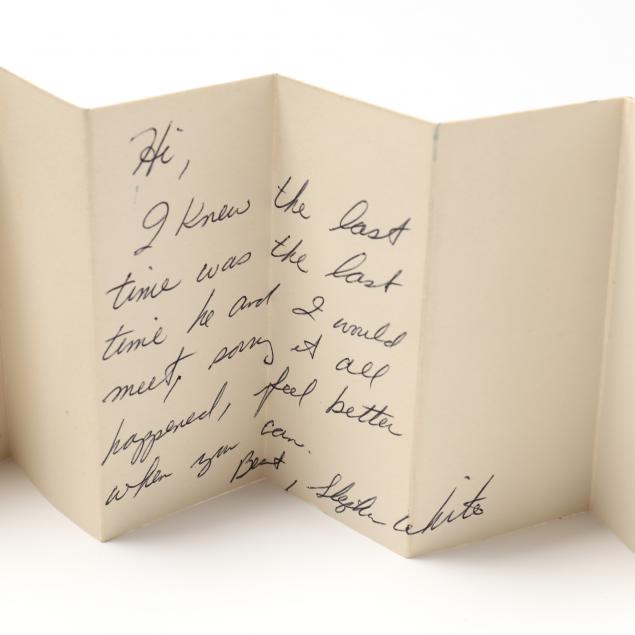 Hi,
I Knew the last
time was the last
time he and I would
meet, sorry it all
happened, feel better
when you can.
Best, Stephen White